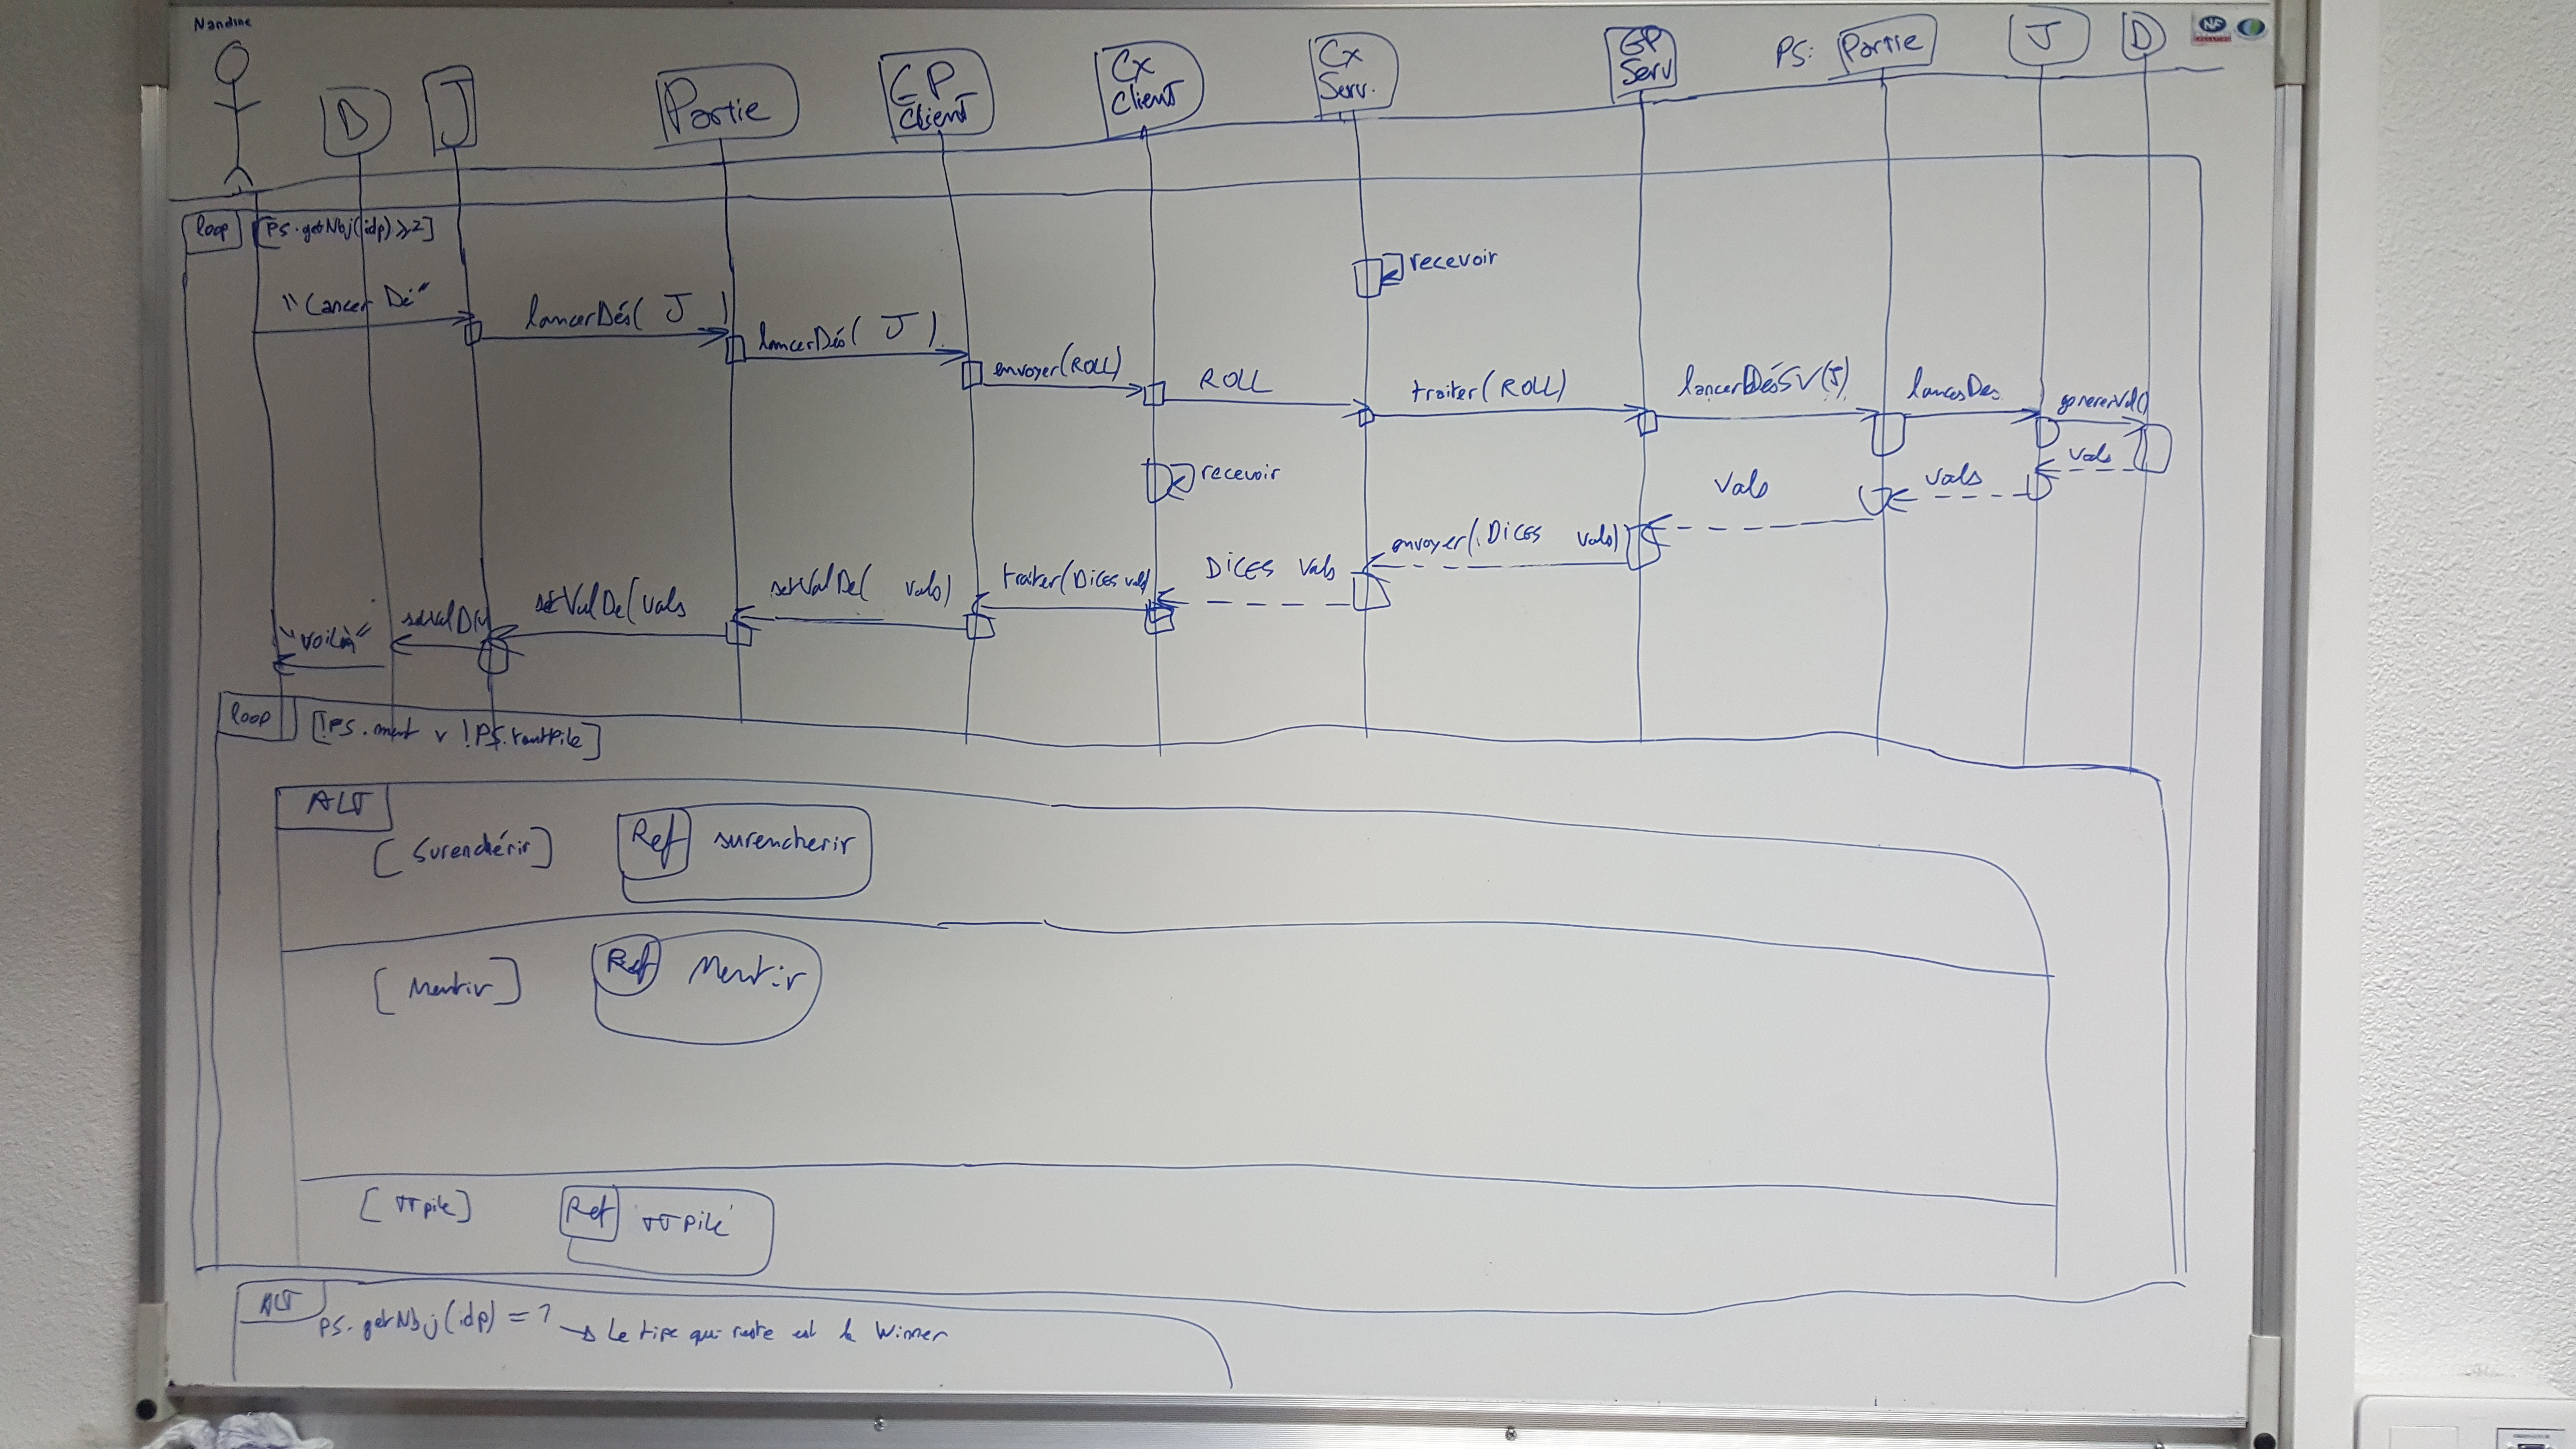 Nandine
D
J
Partie
GP
Client
Cx
Client
Cx
Serv.
GP
Serv
PS: Partie
J
D
NF
loop [PS.getNbj(idp) ⩾2]
recevoir
"Lancer Dé"
lancerDés( J )
lancerDés( J )
envoyer(ROLL)
ROLL
traiter(ROLL)
lancerDésSV(J)
lancerDes
genererVal()
vals
vals
vals
recevoir
envoyer(DICES vals)
DICES vals
traiter(DICES vals)
setValDe( vals)
setValDe(vals
setValD(v
"voilà"
loop [!PS.ment v !PS.toutPile]
ALT
[Surenchérir] Ref surencherir
[Mentir] Ref Mentir
[TTpile] Ref TTPile
ALT
PS.getNbj(idp) = 1 → Le type qui reste est le Winner